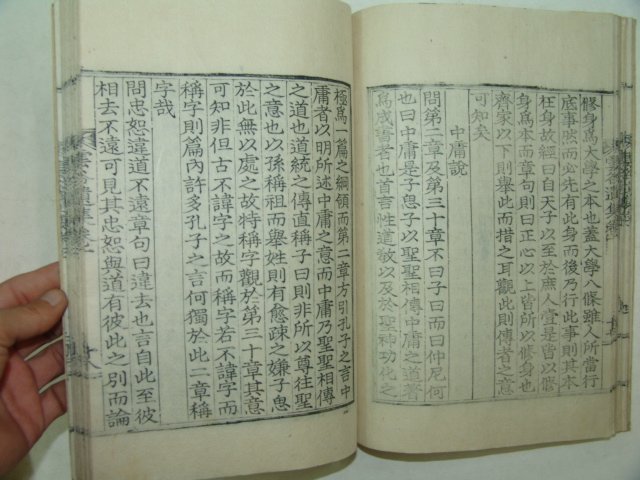 修身爲大學之本也蓋大學八條雖人所當行
底事然而必先有此身而後乃行此事則其本
在身故經曰自天子以至於庶人壹是皆以修
身爲本而章句則曰正心以上皆所以修身也
齊家以下則舉此而措之耳觀此則傳者之意
可知矣
中庸說
問第二章及第三十章不曰子曰而曰仲尼何
也曰中庸是子思子以聖聖相傳中庸之道著
爲成書者也首言性道敎以及於聖神功化之
極爲一篇之綱領而第二章方引孔子之言中
庸者以明所述中庸之意而中庸乃聖聖相傳
之道也道統之傳直稱子曰則非所以尊徃聖
之意也以孫稱祖而舉姓則有愈疎之嫌子思
於此無以處之故特稱字觀於第三十章其意
可知非但古不諱字之故而稱字若不諱字而
稱字則篇內許多孔子之言何獨於此二章稱
字哉
問忠恕違道不遠章句曰違去也言自此至彼
相去不遠可見其忠恕與道有彼此之別而論